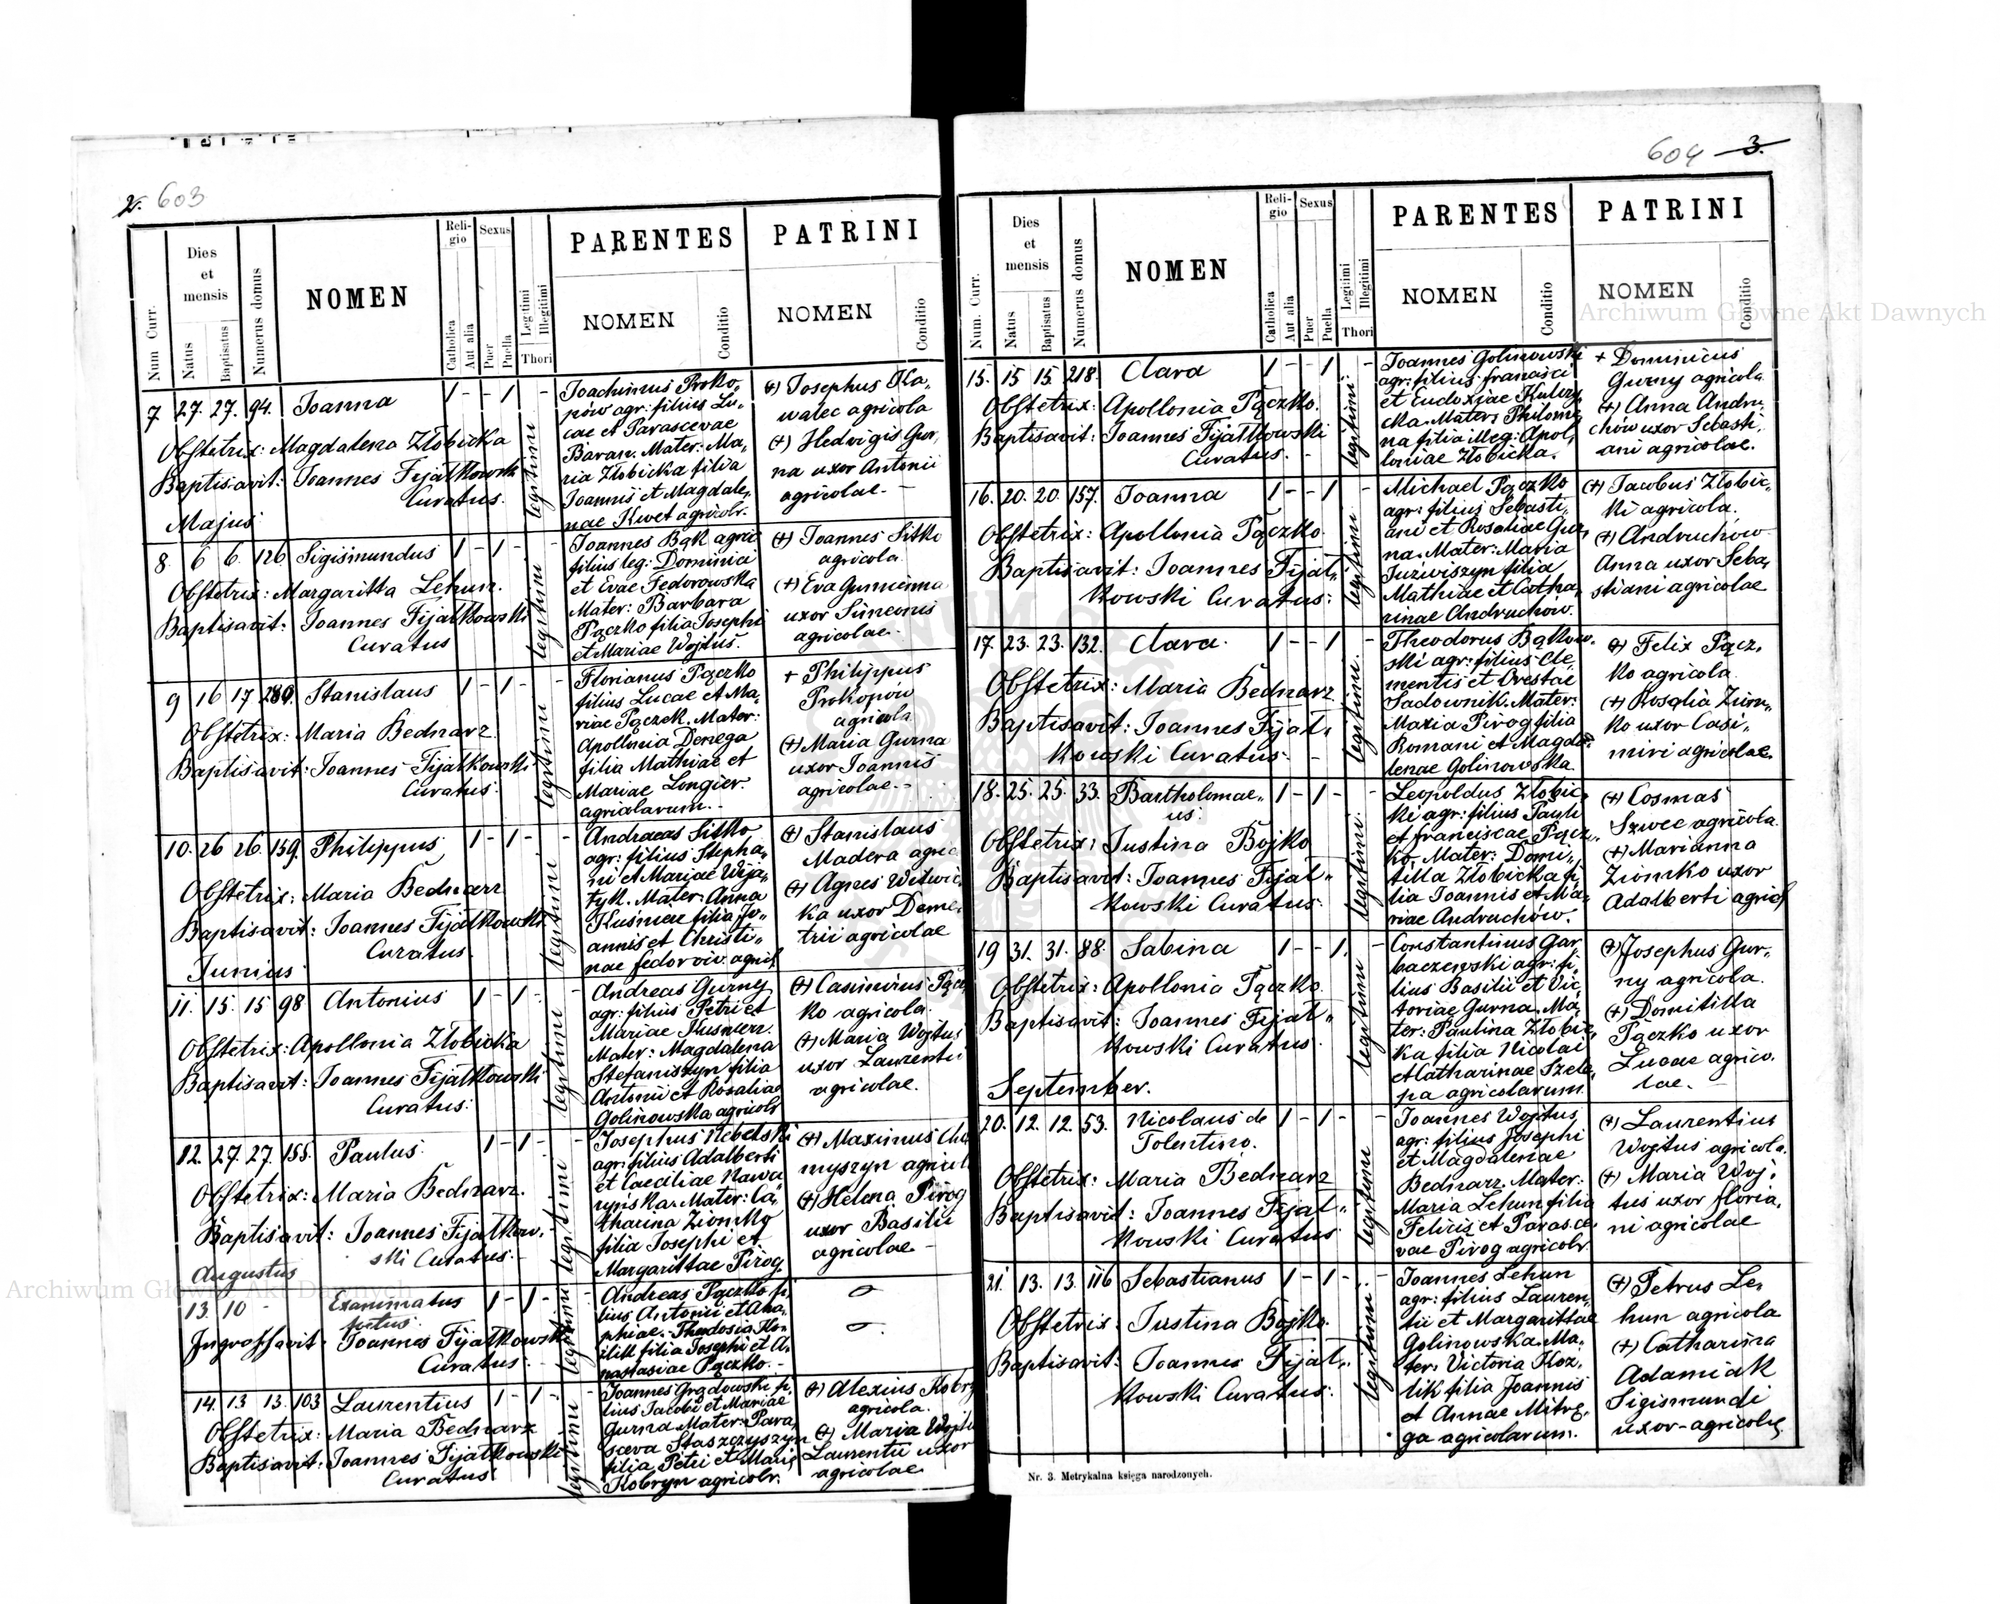 2. 603
Num Curr.
Dies et mensis
Natus
Baptisatus
Numerus domus
NOMEN
Religio
Catholica
Aut alia
Sexus
Puer
Puella
Legitimi
Illegitimi
Thori
PARENTES
NOMEN
Conditio
PATRINI
NOMEN
Conditio
7 27. 27. 94. Joanna 1 - - 1 -
Obstetrix: Magdalena Złobicka
Baptisavit: Joannes Fijałkowski
Curatus.
legitimi
Joachimus Proko„
pów agr. filius Lu„
cae et Parascevae
Baran. Mater: Ma„
ria Złobicka filia
Joannis et Magdale„
nae Kwet agricolr.
(+) Josephus Ko„
walec agricola
(+) Hedvigis Gur„
na uxor Antonii
agricolae. -
Majus
8. 6 6. 126 Sigismundus 1 - 1 - -
Obstetrix: Margaritta Lehun.
Baptisavit: Joannes Fijałkowski
Curatus
legitimi
Joannes Bąk agric
filius leg: Dominici
et Evae Fedorowska
Mater: Barbara
Pączko filia Josephi
et Mariae Wojtuś.
(+) Joannes Sitko
agricola
(+) Eva Gumienna
uxor Simeonis
agricolae.
9 16 17 280. Stanislaus 1 - 1 - -
Obstetrix: Maria Bednarz.
Baptisavit: Joannes Fijałkowski
Curatus.
legitimi
Florianus Pączko
filius Lucae et Ma„
riae Pączek. Mater:
Apollonia Denega
filia Mathiae et
Mariae Longier.
agricolarum.
+ Philippus
Prokopow
agricola
(+) Maria Gurna
uxor Joannis
agricolae. -
10. 26 26. 159. Philippus 1 - 1 - -
Obstetrix: Maria Bednarz
Baptisavit: Joannes Fijałkowski
Curatus.
legitimi
Andraeas Sitko
agr: filius Stepha„
ni et Mariae Wja„
tyk. Mater: Anna
Kuśnierz filia Jo„
annis et Christi„
nae Fedorow. agric.
(+) Stanislaus
Madera agric
(+) Agnes Witwic
ka uxor Deme„
trii agricolae
Junius
11. 15. 15 98 Antonius 1 - 1 - -
Obstetrix: Apollonia Złobicka
Baptisavit: Joannes Fijałkowski
Curatus.
legitimi
Andreas Gurny
agr: filius Petri et
Mariae Kusnierz.
Mater: Magdalena
Stefaniszyn filia
Antonii et Rosaliae
Golinowska agricolr
(+) Casimirus Pącz
ko agricola.
(+) Maria Wojtus
uxor Laurentii
agricolae.
12. 27. 27. 155. Paulus. 1 - 1 -
Obstetrix: Maria Bednarz.
Baptisavit: Joannes Fijałkow„
ski Curatus.
legitimi
Josephus Nebelski
agr: filius Adalberti
et Caeciliae
Mater: Ca„
tharina Zionko
filia Josephi et
Margarittae Pirog
(+) Maximus Cho
myszyn agricol
(+) Helena Pirog
uxor Basilii
agricolae -
Augustus
13. 10 - Exanimatus 1 - 1 - -
Joannes Fijałkowski
Curatus.
legitimi
Andreas Pączko fi„
lius Antonii et Aga„
phiae. Theodosia Ko„
zlik filia Josephi et A„
nastasiae Pączko. -
14. 13 13. 103 Laurentius 1 - 1 - -
Obstetrix: Maria Bednarz
Baptisavit: Joannes Fijałkowski
Curatus
legitimi
Joannes Grądowski fi„
lius Jacobi et Mariae
Gurna Mater: Para„
sceva Staszczyszyn
filia Petri et Mariae
Kobryn agricolr.
(+) Alexius Kobry
agricola.
(+) Maria Wojtu
Laurentii uxor
agricolae.
604 3.
Num. Curr.
Dies et mensis
Natus
Baptisatus
Numerus domus
NOMEN
Religio
Catholica
Aut alia
Sexus
Puer
Puella
Legitimi
Illegitimi
Thori
PARENTES
NOMEN
Conditio
PATRINI
NOMEN
Conditio
15. 15 15. 218. Clara 1 - - 1 -
Obstetrix: Apollonia Pączko.
Baptisavit: Joannes Fijałkowski
Curatus. -
legitimi
Joannes Golinowski
agr: filius Francisci
et Eudoxiae Kulczy
cka. Mater: Philome
na filia Meg: Apol„
loniae Złobicka.
+ Dominicus
Gurny agricola
(+) Anna Andru
chów uxor Sebasti„
ani agricolae.
16. 20. 20. 157. Joanna 1 - - 1 -
Obstetrix: Apollonia Pączko.
Baptisavit: Joannes Fijał„
kowski Curatus.
legitimi
Michael Pączko
agr: filius Sebasti„
ani et Rosaliae Gur„
na. Mater: Maria
Juziwiszyn filia
Mathiae et Catha„
rinae Andruchów.
(+) Jacobus Złobic„
ki agricola.
(+) Andruchów
Anna uxor Seba„
stiani agricolae
17. 23. 23. 132. Clara. 1 - - 1 -
Obstetrix: Maria Bednarz
Baptisavit: Joannes Fijał„
kowski Curatus. -
legitimi
Theodorus Bąkow„
ski agr: filius Cle„
mentis et Orestae
Sadownik. Mater:
Maria Pirog filia
Romani et Magda„
lenae Golinowska
(+) Felix Pącz„
ko agricola
(+) Rosalia Zion„
ko uxor Casi„
miri agricolae.
18. 25. 25. 33. Bartholomae„ 1 - 1 - -
us.
Obstetrix: Justina Bojko
Baptisavit: Joannes Fijał„
kowski Curatus.
legitimi
Leopoldus Złobic„
ki agr: filius Pauli
et Franciscae Pącz„
ko. Mater: Domi„
tilla Złobicka fi
lia Joannis et Ma„
riae Andruchów.
(+) Cosmas
Szwec agricola.
(+) Marianna
Zionko uxor
Adalberti agricol
19 31. 31. 88. Sabina 1 - - 1. -
Obstetrix: Apollonia Pączko.
Baptisavit: Joannes Fijał„
kowski Curatus.
legitimi
Constantinus Gar„
baczewski agr: fi„
lius Basilii et Vic
toriae Gurna. Ma„
ter: Paulina Złobic„
ka filia Nicolai
et Catharinae Szele„
pa agricolarum.
(+) Josephus Gur„
ny agricola.
(+) Domitilla
Pączko uxor
Lucae agrico„
lae. -
September.
20. 12. 12. 53. Nicolaus de 1 - 1 - -
Tolentino.
Obstetrix: Maria Bednarz
Baptisavit: Joannes Fijał„
kowski Curatus
legitimi
Joannes Wojtus
agr: filius Josephi
et Magdalenae
Bednarz. Mater:
Maria Lehun filia
Felicis et Parasce„
vae Pirog agricolr.
(+) Laurentius
Wojtus agricola.
(+) Maria Woj„
tus uxor Floria„
ni agricolae
21. 13. 13. 116 Sebastianus 1 - 1 - -
Obstetrix: Justina Bojko.
Baptisavit: Joannes Fijał„
kowski Curatus.
legitimi
Joannes Lehun
agr: filius Lauren„
tii et Margarittae
Golinowska. Ma„
ter: Victoria Koz„
lik filia Joannis
et Annae Mitrę„
ga agricolarum.
(+) Petrus Le„
hun agricola
(+) Catharina
Adamiak
Sigismundi
uxor agricolae
Nr. 3. Metrykalna księga narodzonych.
Archiwum Główne Akt Dawnych
Archiwum Główne Akt Dawnych